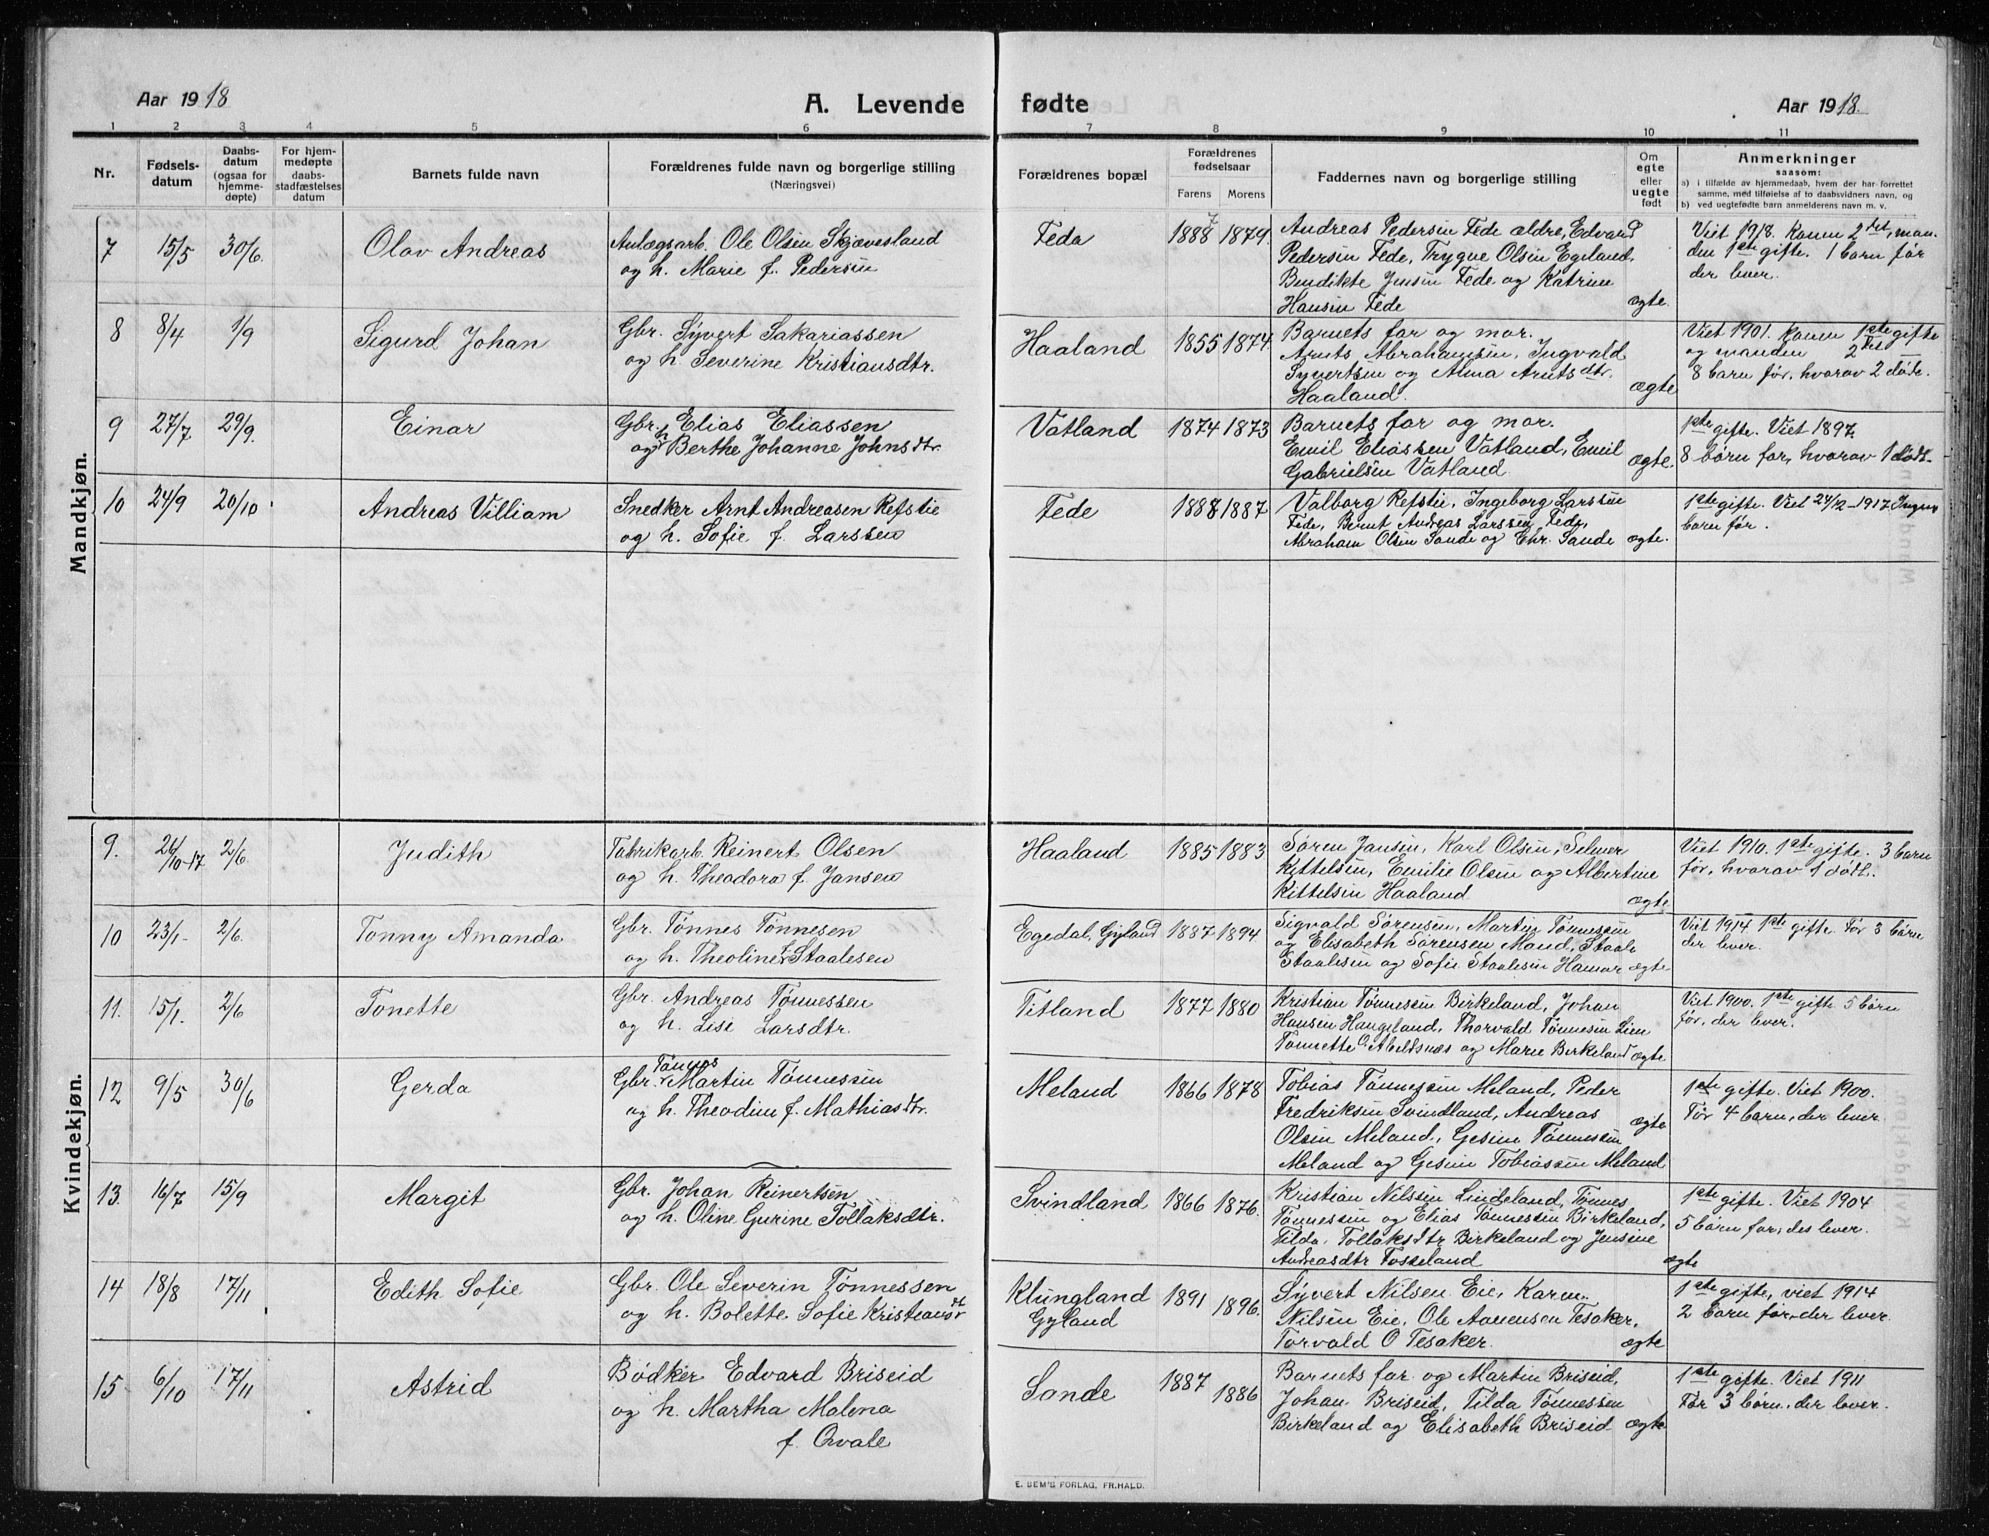 Aar 1918
A. Levende fødte
Aar 1918.
1 2 3 4 5 6 7 8 9 10 11
Nr.
Fødsels-
datum
Daabs-
datum
(ogsaa for
hjemme-
døpte)
For hjem-
medøpte
daabs-
stadfæstelses
datum
Barnets fulde navn
Forældrenes fulde navn og borgerlige stilling
(Næringsvei)
Forældrenes bopæl
Forældrenes
fødselsaar
Farens Morens
Faddernes navn og borgerlige stilling
Om
egte
eller
uegte
født
Anmerkninger
saasom:
a) i tilfælde av hjemmedaab, hvem der har forrettet
samme, med tilføielse af to daabsvidners navn, og
b) ved uegtefødte barn anmelderens navn m. v.
Mandkjøn.
7 15/5 30/6. Olav Andreas
Anlægsarb. Ole Olsen Skjævesland
og h. Marie f. Pedersen
Feda 1888 7 1879.
Andreas Pedersen Fede ældre, Edvard
Pedersen Fede, Trygve Olsen Egeland,
Bendikte Jensen Fede og Katrine
Hansen Fede
ægte.
Viet 1918. Konen 2det, man-
den 1ste gifte. 1 barn før
der lever.
8 8/4 1/9 Sigurd Johan
Gbr. Syvert Sakariassen
og h. Severine Kristiansdtr.
Haaland 1855 1874
Barnets far og mor.
Arnts Abrahamsen, Ingvald
Syvertsen og Alma Arntsdtr.
Haaland.
ægte
Viet 1901. Konen 1ste gifte
og manden 2det
8 barn før, hvorav 2 døde.
9 27/7. 29/9. Einar
Gbr. Elias Eliassen
og h Berthe Johanne Johnsdtr.
Vatland 1874 1873
Barnets far og mor.
Emil Eliassen Vatland, Emil
Gabrielsen Vatland
ægte.
1ste gifte. Viet 1897.
8 børn før, hvorav 1 dødt.
10 24/9 20/10 Andreas Villiam
Snedker Arnt Andreasen Refstie
og h. Sofie f. Larssen
Fede 1888 1887
Valborg Refstie, Ingeborg Larssen
Fede, Bernt Andreas Larssen Fede,
Abraham Olsen Sande og Chr. Sande
ægte.
1ste gifte. Viet 24/12-1917 Ingen
barn før.
Kvindekjøn.
9. 26/10-17 2/6. Judith
Fabrikarb. Reinert Olsen
og h. Theodora f. Jansen
Haaland 1885 1883
Søren Jansen, Karl Olsen, Selmer
Kittelsen, Emilie Olsen og Albertine
Kittelsen Haaland
ægte.
Viet 1910. 1ste gifte. 3 barn
før, hvorav 1 dødt.
10 23/1. 2/6. Tonny Amanda
Gbr. Tønnes Tønnesen
og h. Theoline f. Staalesen
Egedal, Gyland 1887 1894
Sigvald Sørensen, Martin Tønnessen
og Elisabeth Sørensen Mand, Staale
Staalesen og Sofie Staalesen Hamar
ægte
Viet 1914 1ste gifte. Før 3 børn
der lever.
11. 15/1. 2/6 Tonette
Gbr. Andreas Tønnessen
og h. Lise Larsdtr.
Titland 1877 1880
Kristian Tønnessen Birkeland, Johan
Hansen Haugeland, Thorvald Tønnesen Lien
Tønnette Abeldsnæs og Marie Birkeland
ægte.
Viet 1900. 1ste gifte 5 børn
før, der lever.
12 9/5 30/6 Gerda
Gbr. Tønnes Martin Tønnessen
og h. Theodine f. Mathiasdtr.
Meland 1866 1878
Tobias Tønnessen Meland, Peder
Fredriksen Svindland, Andreas
Olsen Meland, Gesine Tønnessen
Meland og Gesine Tobiassen Meland
ægte
1ste gifte. Viet 1900.
Før 4 barn, der lever.
13. 16/7 15/9 Margit
Gbr. Johan Reinertsen
og h. Oline Gurine Tollaksdtr.
Svindland 1866 1876.
Kristian Nilssen Lindeland, Tønnes
Tønnessen og Elias Tønnessen Birkeland,
Tilda Tollaksdtr Birkeland og Jensine
Andreasdtr Fosseland
ægte
1ste gifte. Viet 1904
5 børn før, des lever.
14 18/8 17/11 Edith Sofie
Gbr. Ole Severin Tønnessen
og h. Bolette Sofie Kristiansdtr
Klungland
Gyland
1891 1896.
Syvert Nilsen Eie, Karen
Nilsen Eie, Ole Aanensen Tesaker,
Torvald O Tesaker.
ægte
1ste gifte, viet 1914
2 børn før, der lever.
15 6/10 17/11 Astrid
Bødker Edvard Briseid
og h. Martha Malena
f. Qvale
Sande 1887 1886
Barnets far og Martin Briseid,
Johan Briseid, Tilda Tønnessen
Birkeland og Elisabeth Briseid
ægte
1ste gifte. Viet 1911
Før 3 børn, der lever.
E. SEM'S FORLAG, FR.HALD.